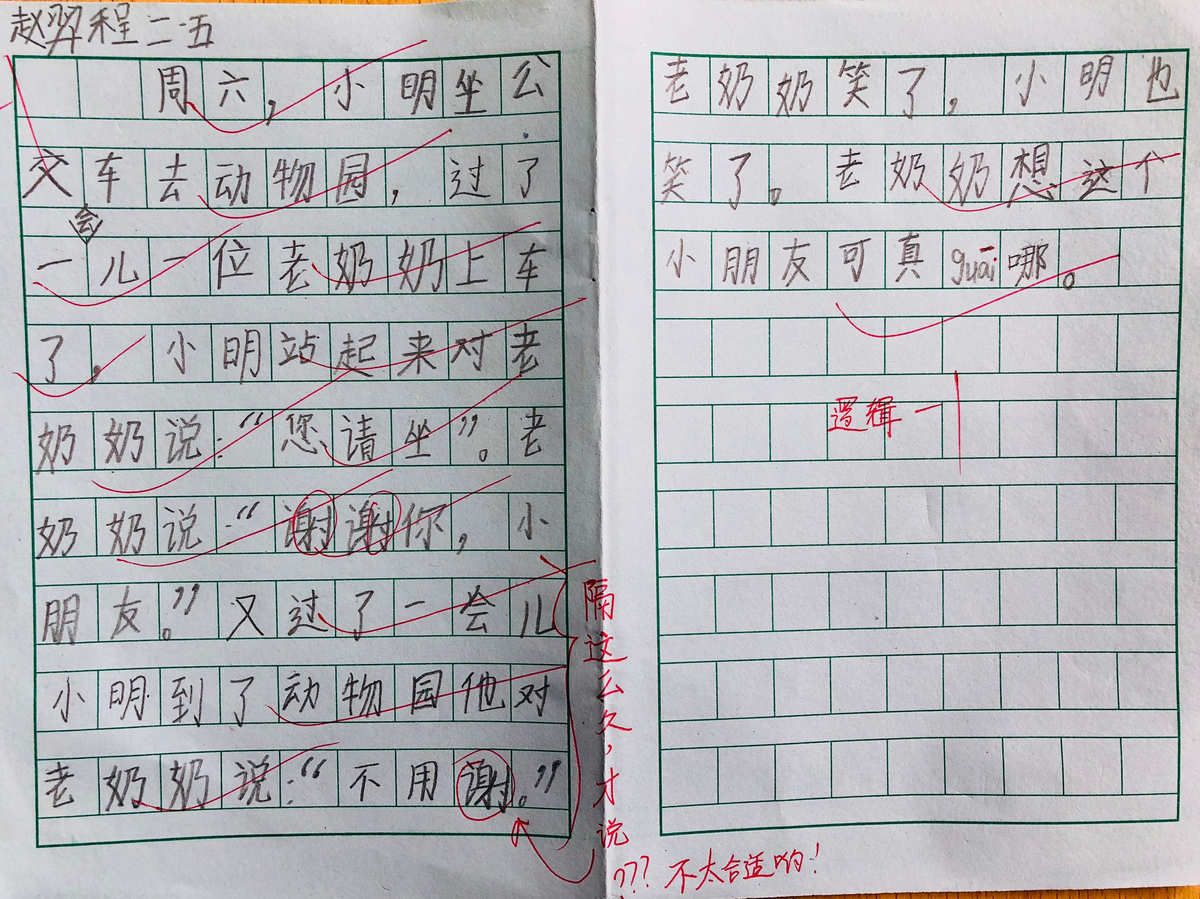 赵羿程 二·五
周六，小明坐公
交车去动物园，过了
会
一儿一位老奶奶上车
了，小明站起来对老
奶奶说：“您请坐”。老
奶奶说：“谢谢你，小
朋友。”又过了一会儿
小明到了动物园他对
老奶奶说：“不用谢。”
隔这么久，才说
??? 不太合适哟！
老奶奶笑了，小明也
笑了。老奶奶想，这个
小朋友可真guāi哪。
逻辑一